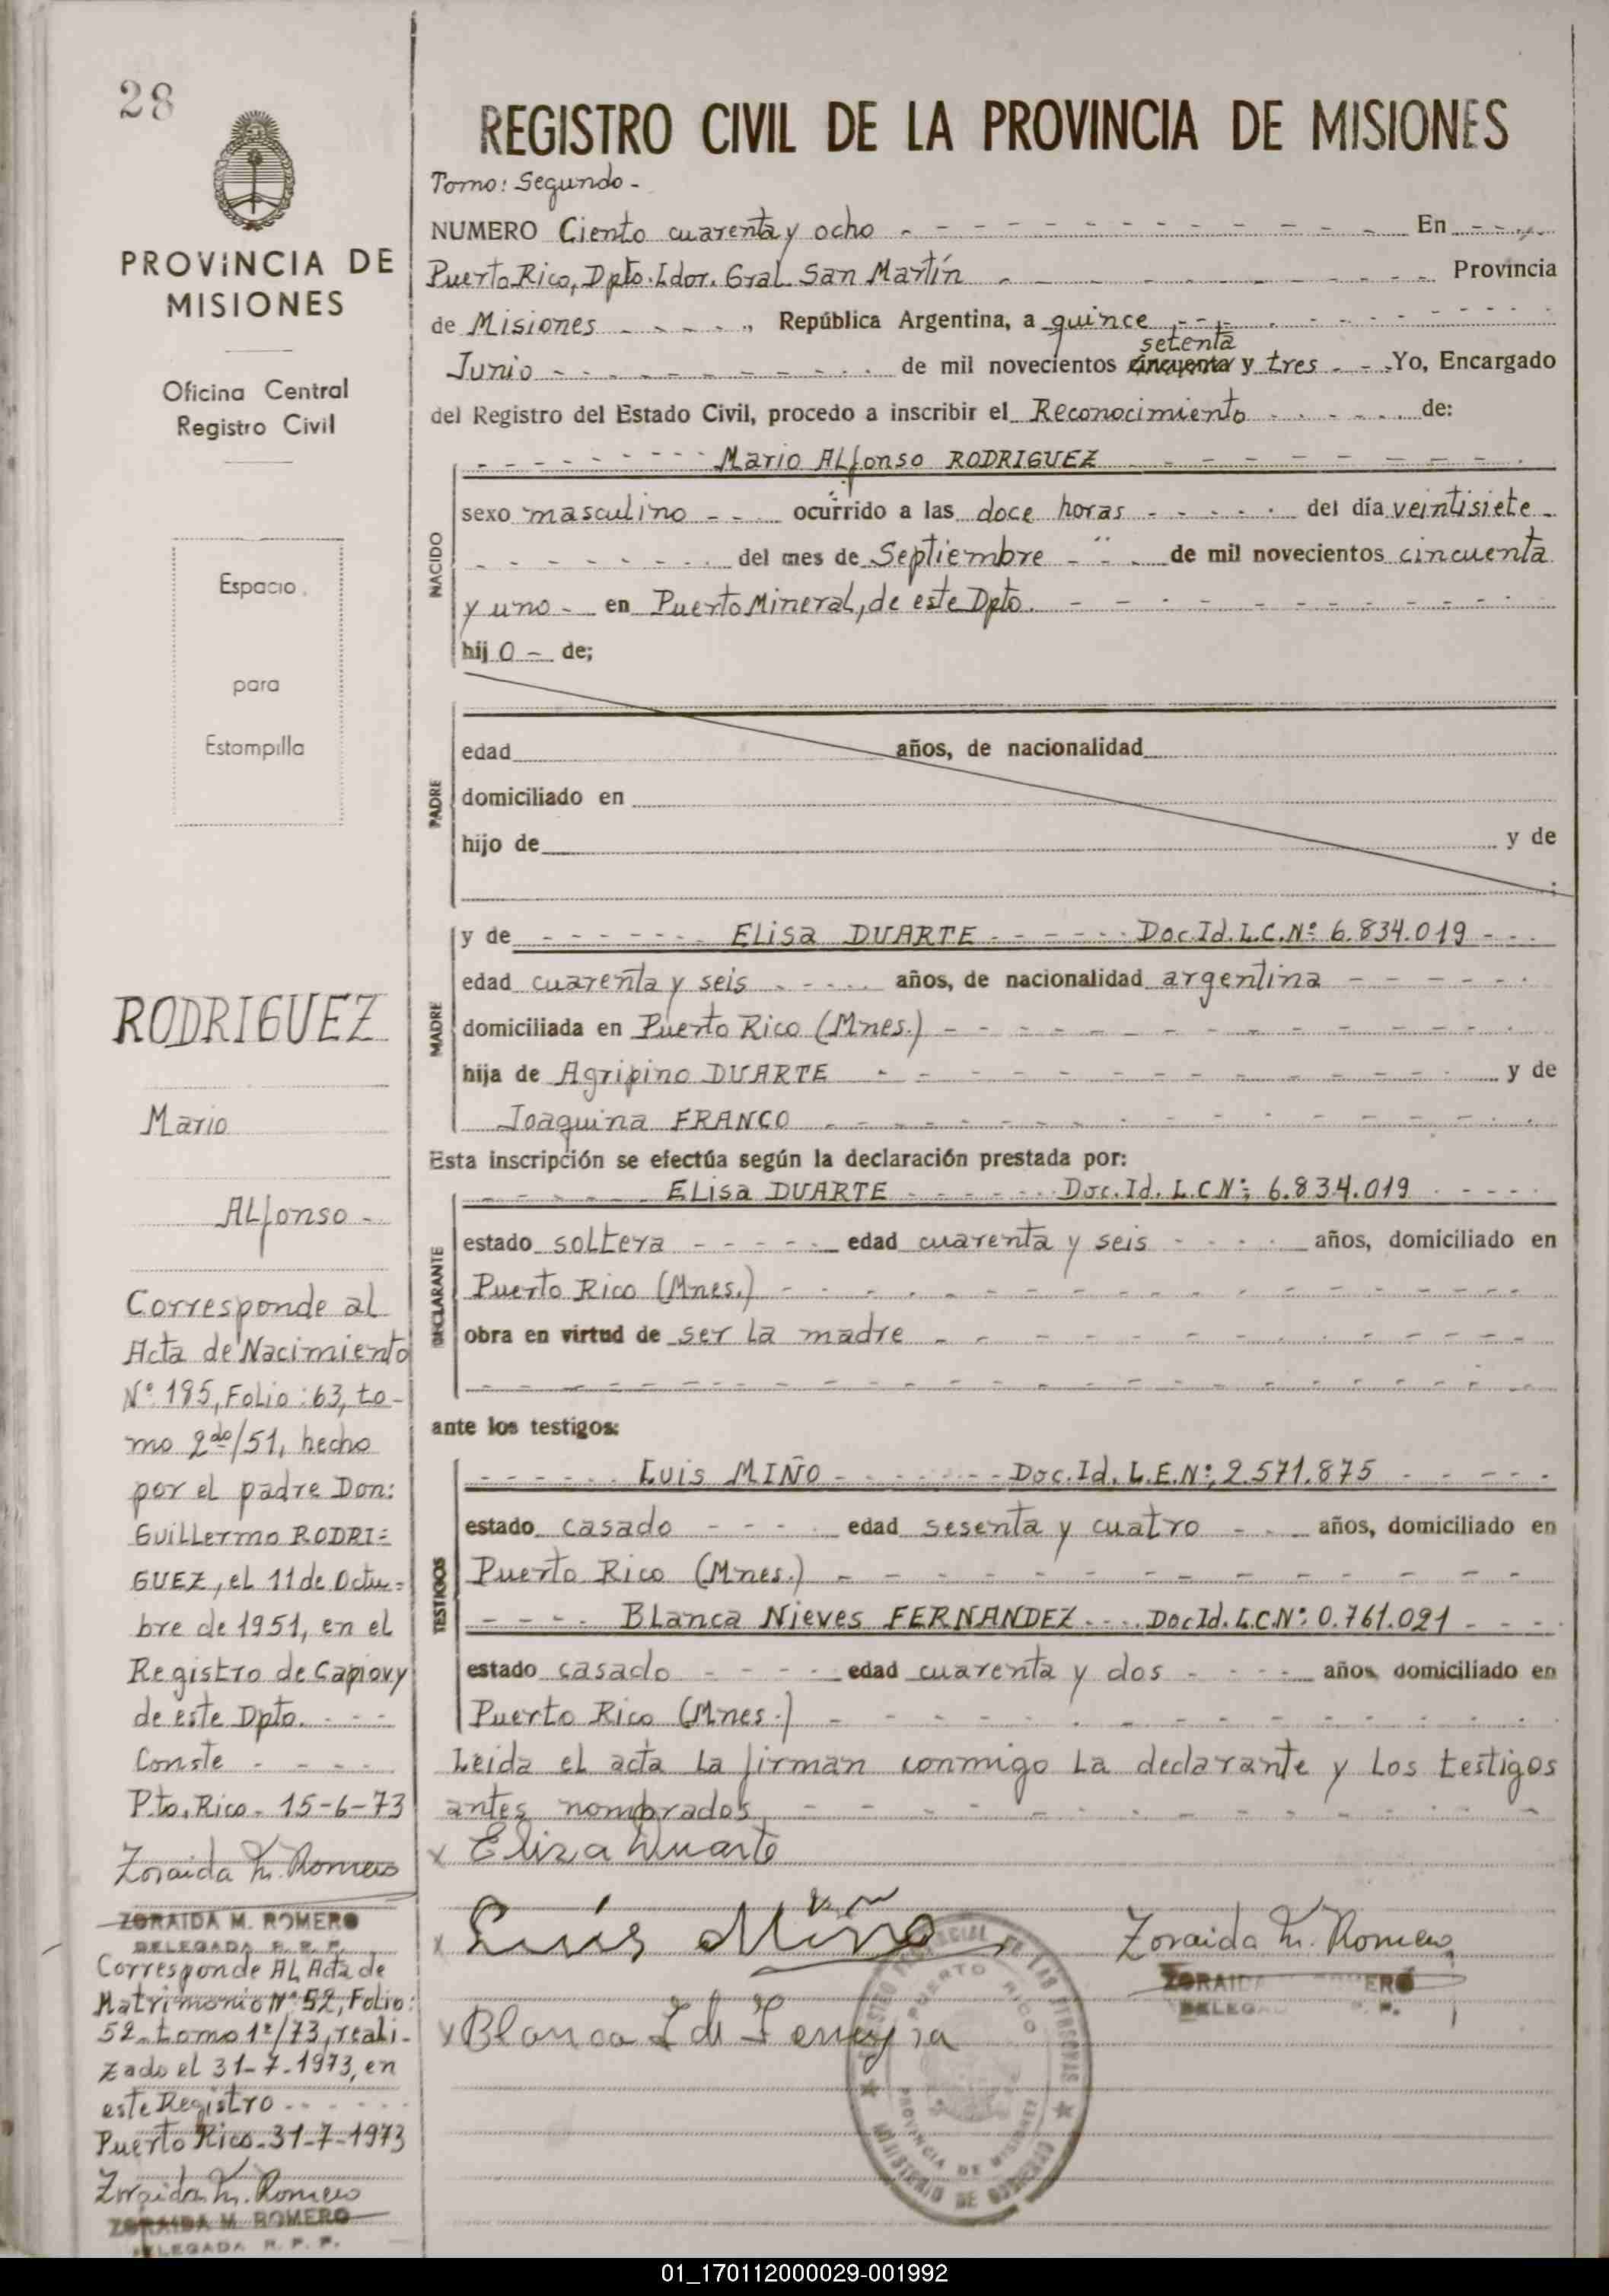 28
PROVINCIA DE
MISIONES
Oficina Central
Registro Civil
Espacio
para
Estampilla
RODRIGUEZ
Mario
Alfonso -
Corresponde al
Acta de Nacimiento
Nº 185, Folio: 63, to-
mo 2do/51, hecho
por el padre Don:
Guillermo RODRI=
GUEZ, el 11 de Octu=
bre de 1951, en el
Registro de Capiovy
de este Dpto. - - -
Conste - - - -
Pto. Rico - 15-6-73
Zoraida M. Romero
ZORAIDA M. ROMERO
DELEGADA R. P. P.
Corresponde AL Acta de
Matrimonio Nº 52, Folio:
52 - tomo 1º/73, reali-
zado el 31-7-1973, en
este Registro - - - -
Puerto Rico - 31-7-1973
Zoraida M. Romero
ZORAIDA M. ROMERO
DELEGADA R. P. P.
REGISTRO CIVIL DE LA PROVINCIA DE MISIONES
Tomo: Segundo -
NUMERO Ciento cuarenta y ocho - - - En - - -
Puerto Rico, Dpto. Ldor. Gral. San Martín - - - Provincia
de Misiones - - - , República Argentina, a quince - - -
setenta
Junio - - - de mil novecientos cincuenta y tres - - . Yo, Encargado
del Registro del Estado Civil, procedo a inscribir el Reconocimiento - - - de:
NACIDO
- - - Mario Alfonso RODRIGUEZ - - -
sexo masculino - - - ocurrido a las doce horas - - - del día veintisiete -
- - - del mes de Septiembre - - - de mil novecientos cincuenta
y uno - en Puerto Mineral, de este Dpto. - - -
hij o - de;
PADRE
edad años, de nacionalidad
domiciliado en
hijo de y de
;
MADRE
y de - - - Elisa DUARTE - - - Doc. Id. L.C. Nº 6.834.019 - - -
edad cuarenta y seis - - - años, de nacionalidad argentina - - -
domiciliada en Puerto Rico (Mnes.) - - -
hija de Agripino DUARTE - - - y de
Joaquina FRANCO - - -
Esta inscripción se efectúa según la declaración prestada por:
DECLARANTE
- - - Elisa DUARTE - - - Doc. Id. L.C Nº: 6.834.019 - - -
estado soltera - - - edad cuarenta y seis - - - años, domiciliado en
Puerto Rico (Mnes.) - - -
obra en virtud de ser la madre - - -
- - -
ante los testigos:
TESTIGOS
- - - Luis MIÑO - - - Doc. Id. L.E. Nº: 2.571.875 - - -
estado casado - - - edad sesenta y cuatro - - - años, domiciliado en
Puerto Rico (Mnes.) - - -
- - - Blanca Nieves FERNANDEZ - - - Doc Id. L.C. Nº: 0.761.021 - - -
estado casado - - - edad cuarenta y dos - - - años domiciliado en
Puerto Rico (Mnes.) - - -
Leida el acta la firman conmigo la declarante y los testigos
antes nombrados - - -
x Eliza Duarte
x Luis Miño
Zoraida M. Romero
ZORAIDA M. ROMERO
DELEGADA R. P. P.
x Blanca
PUERTO RICO
PROVINCIA DE MISIONES
MINISTERIO DE GOBIERNO
01_170112000029-001992